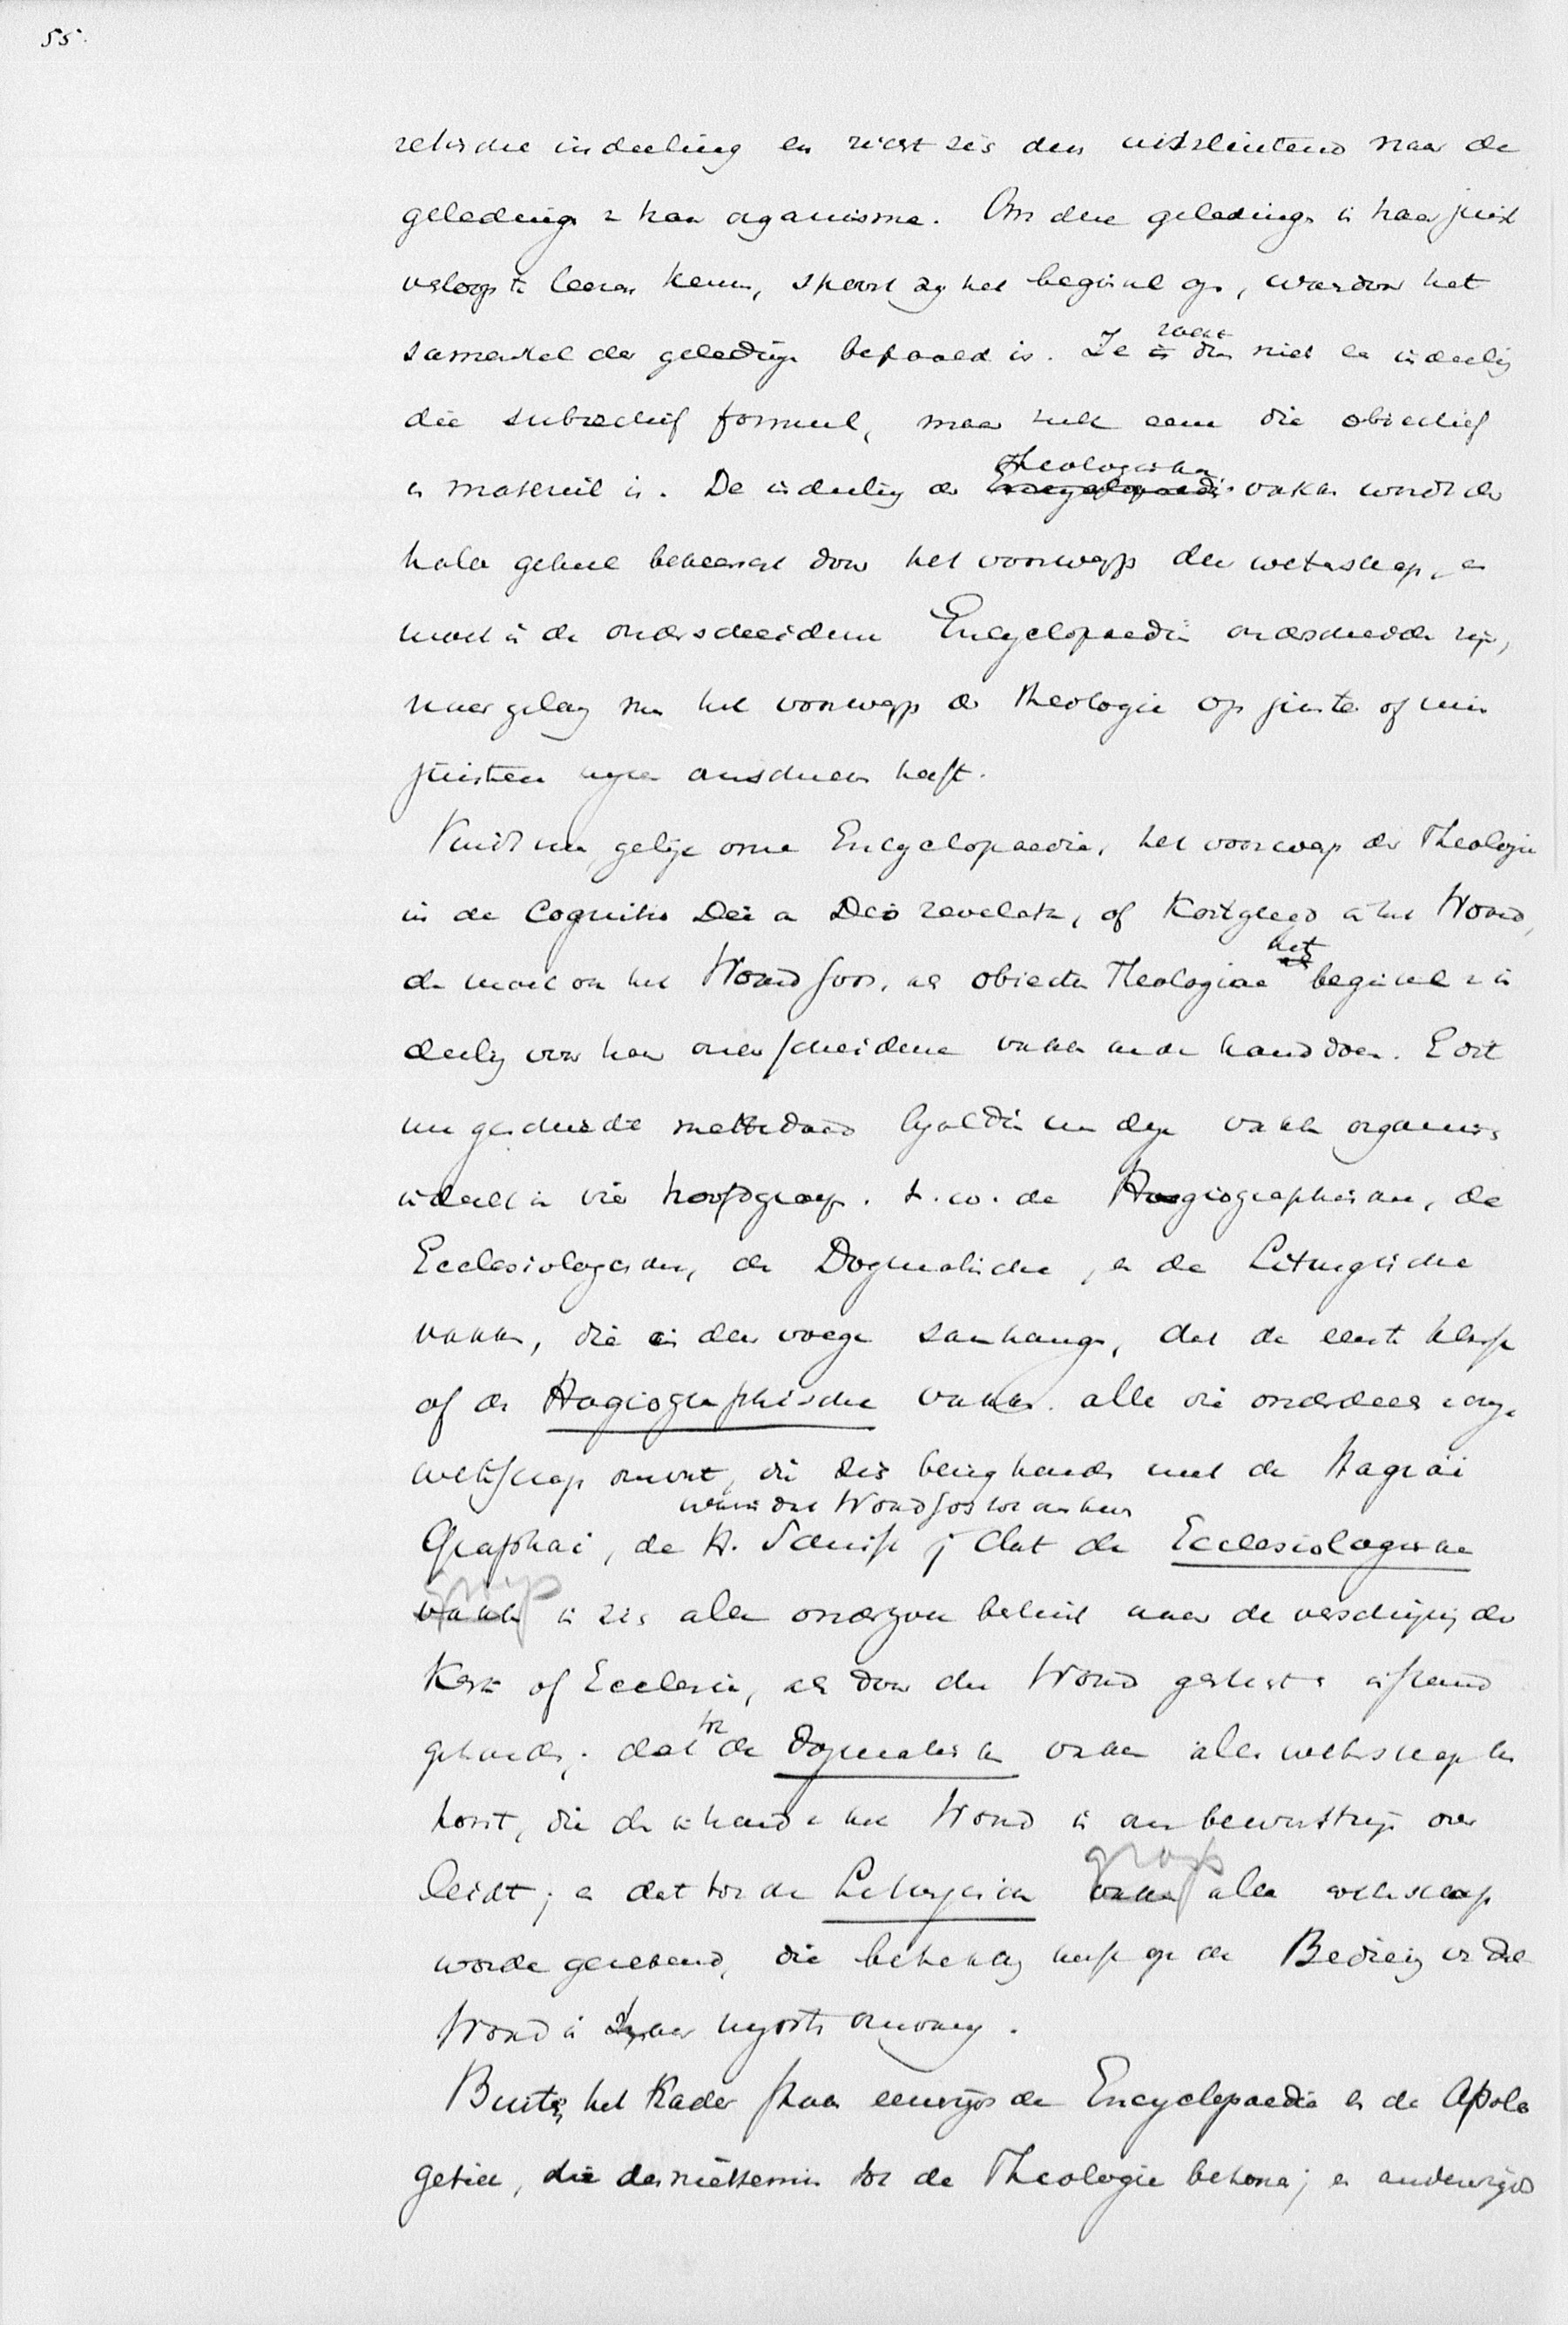 55.
indeeling en richt zich dus uitsluitend naar de
geledingen van haar organisme. Om deze geledingen in haar juist
verloop te leeren kennen, spoort zij het beginsel op, waardoor het
samenstel der geledingen bepaald is. Ze zoekt dus niet een indeeling
die subjectief formeel, maar zulk eene die objectief
en materieel is. De indeeling der Theologische vakken wordt der
halve geheel beheerscht door het voorwerp dezer wetenschap, en
moet in de onderscheidene Encyclopaedien onderscheiden zijn,
naar gelang men het voorwerp der Theologie op juiste of min
juiste wijze omschreven heeft.
Vindt nu, gelijk onze Encyclopaedie, het voorwerp der Theologie
in de Cognitio Dei a Deo revelata, of kortgezegd in het Woord,
dan moet ook het Woord Gods, als objectum Theologiae het beginsel van in
deeling voor haar onderscheidene vakken aan de hand doen. En dit
nu geschiedt metterdaad bijaldien men deze vakken organisch
indeelt in vier hoofdgroepen. t.w. de Hagiographische, de
Ecclesiologische, de Dogmatische, en de Liturgische
vakken, die in dier voege samenhangen, dat de eerste klasse
of de Hagiographische vakken alle die onderdeelen onzer
wetenschap omvat, die zich bezighouden met de Hagiai
waarin dat Woord Gods tot ons kwam
Graphai, de H. Schrift; dat de Ecclesiologische
groep in zich alle onderzoek besluit naar de verschijning der
Kerk of Ecclesia, als door dit Woord gesticht en in stand
gehouden; dat tot de Dogmatische vakken alle wetenschap be
hoort, die den inhoud van het Woord in ons bewustzijn over
leidt; en dat tot de Liturgische groep alle wetenschap
worde gerekend, die betrekking heeft op de Bediening van dat
Woord in zijn wijdsten omvang.
Buiten het kader staan eenerzijds de Encyclopaedie en de Apolo
getiek, die desniettemin tot de Theologie behooren; en anderzijds